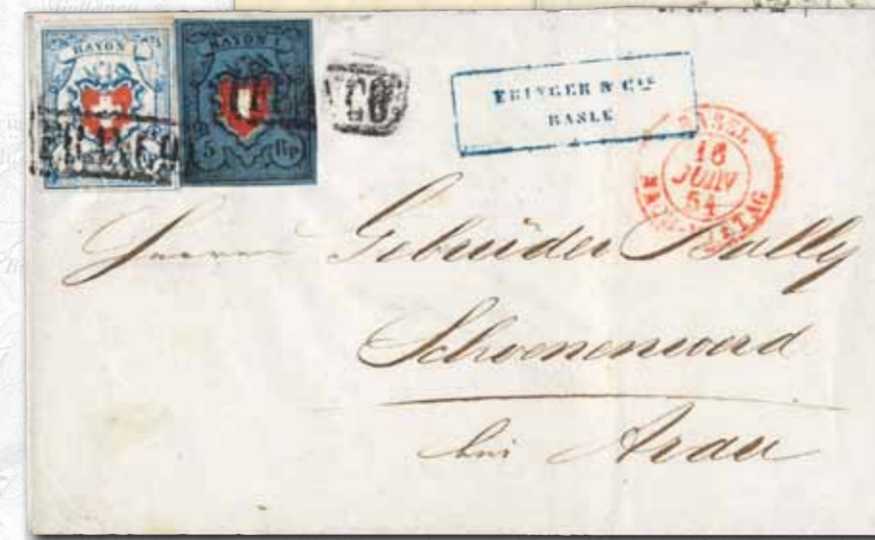 RAYON I
RAYON I
5 Rp.
FRANCO
FRANCO
BASLE
BASEL
16
JUIN
54
NACHMITTAG
Herren Gebrüder Bally
Schoenenwerd
bei Arau